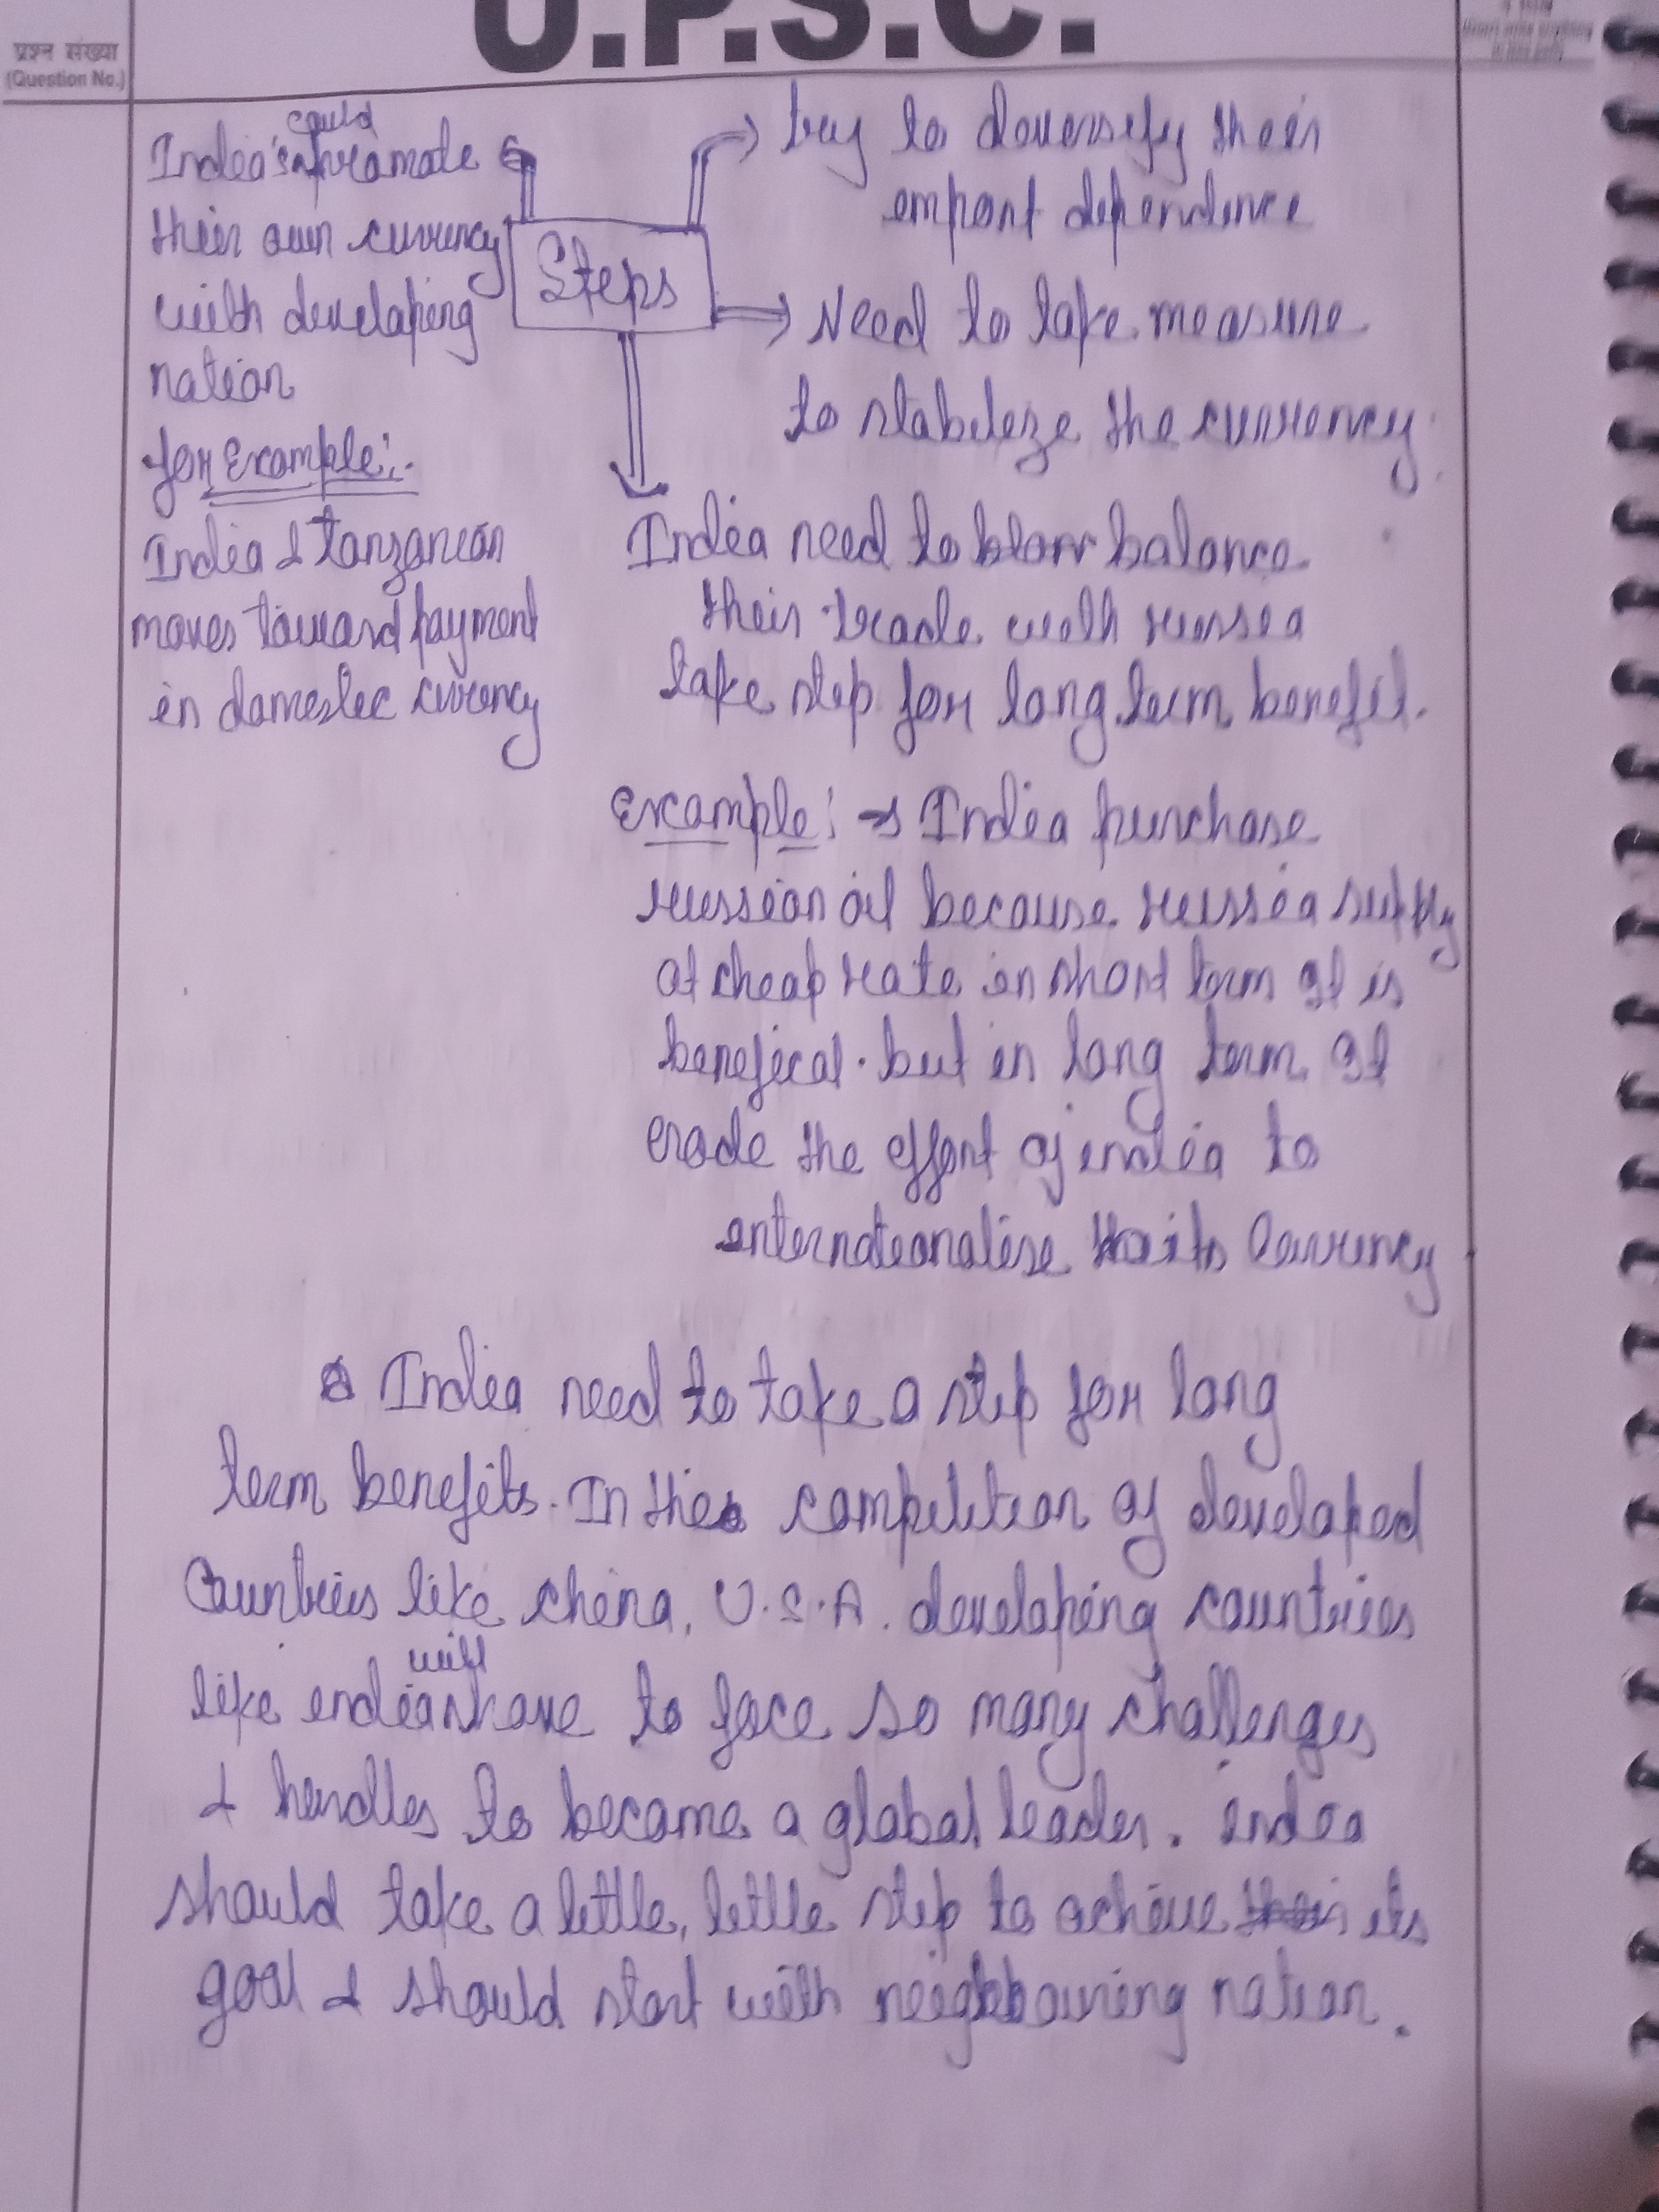 U.P.S.C.
प्रश्न संख्या
(Question No.)
could
India's promote
their own currency
with developing
nation
for Example:-
India & tanzanian
moves toward payment
in domestic currency
Steps
try to diversify their
import dependence
Need to take measure
to stabilize the currency.
India need to balance
their trade with russia
take step for long term benefit.
Example: → India purchase
russian oil because russia supply
at cheap rate in short term It is
benefical. but in long term It
erode the effort of india to
internationalise its Currency
India need to take a step for long
term benefits. In the competition of developed
Countries like china, U.S.A. developing countries
will
like india have to face so many challenges
& hurdles to become a global leader. india
should take a little, little step to achieve its
goal & should start with neighbouring nation.